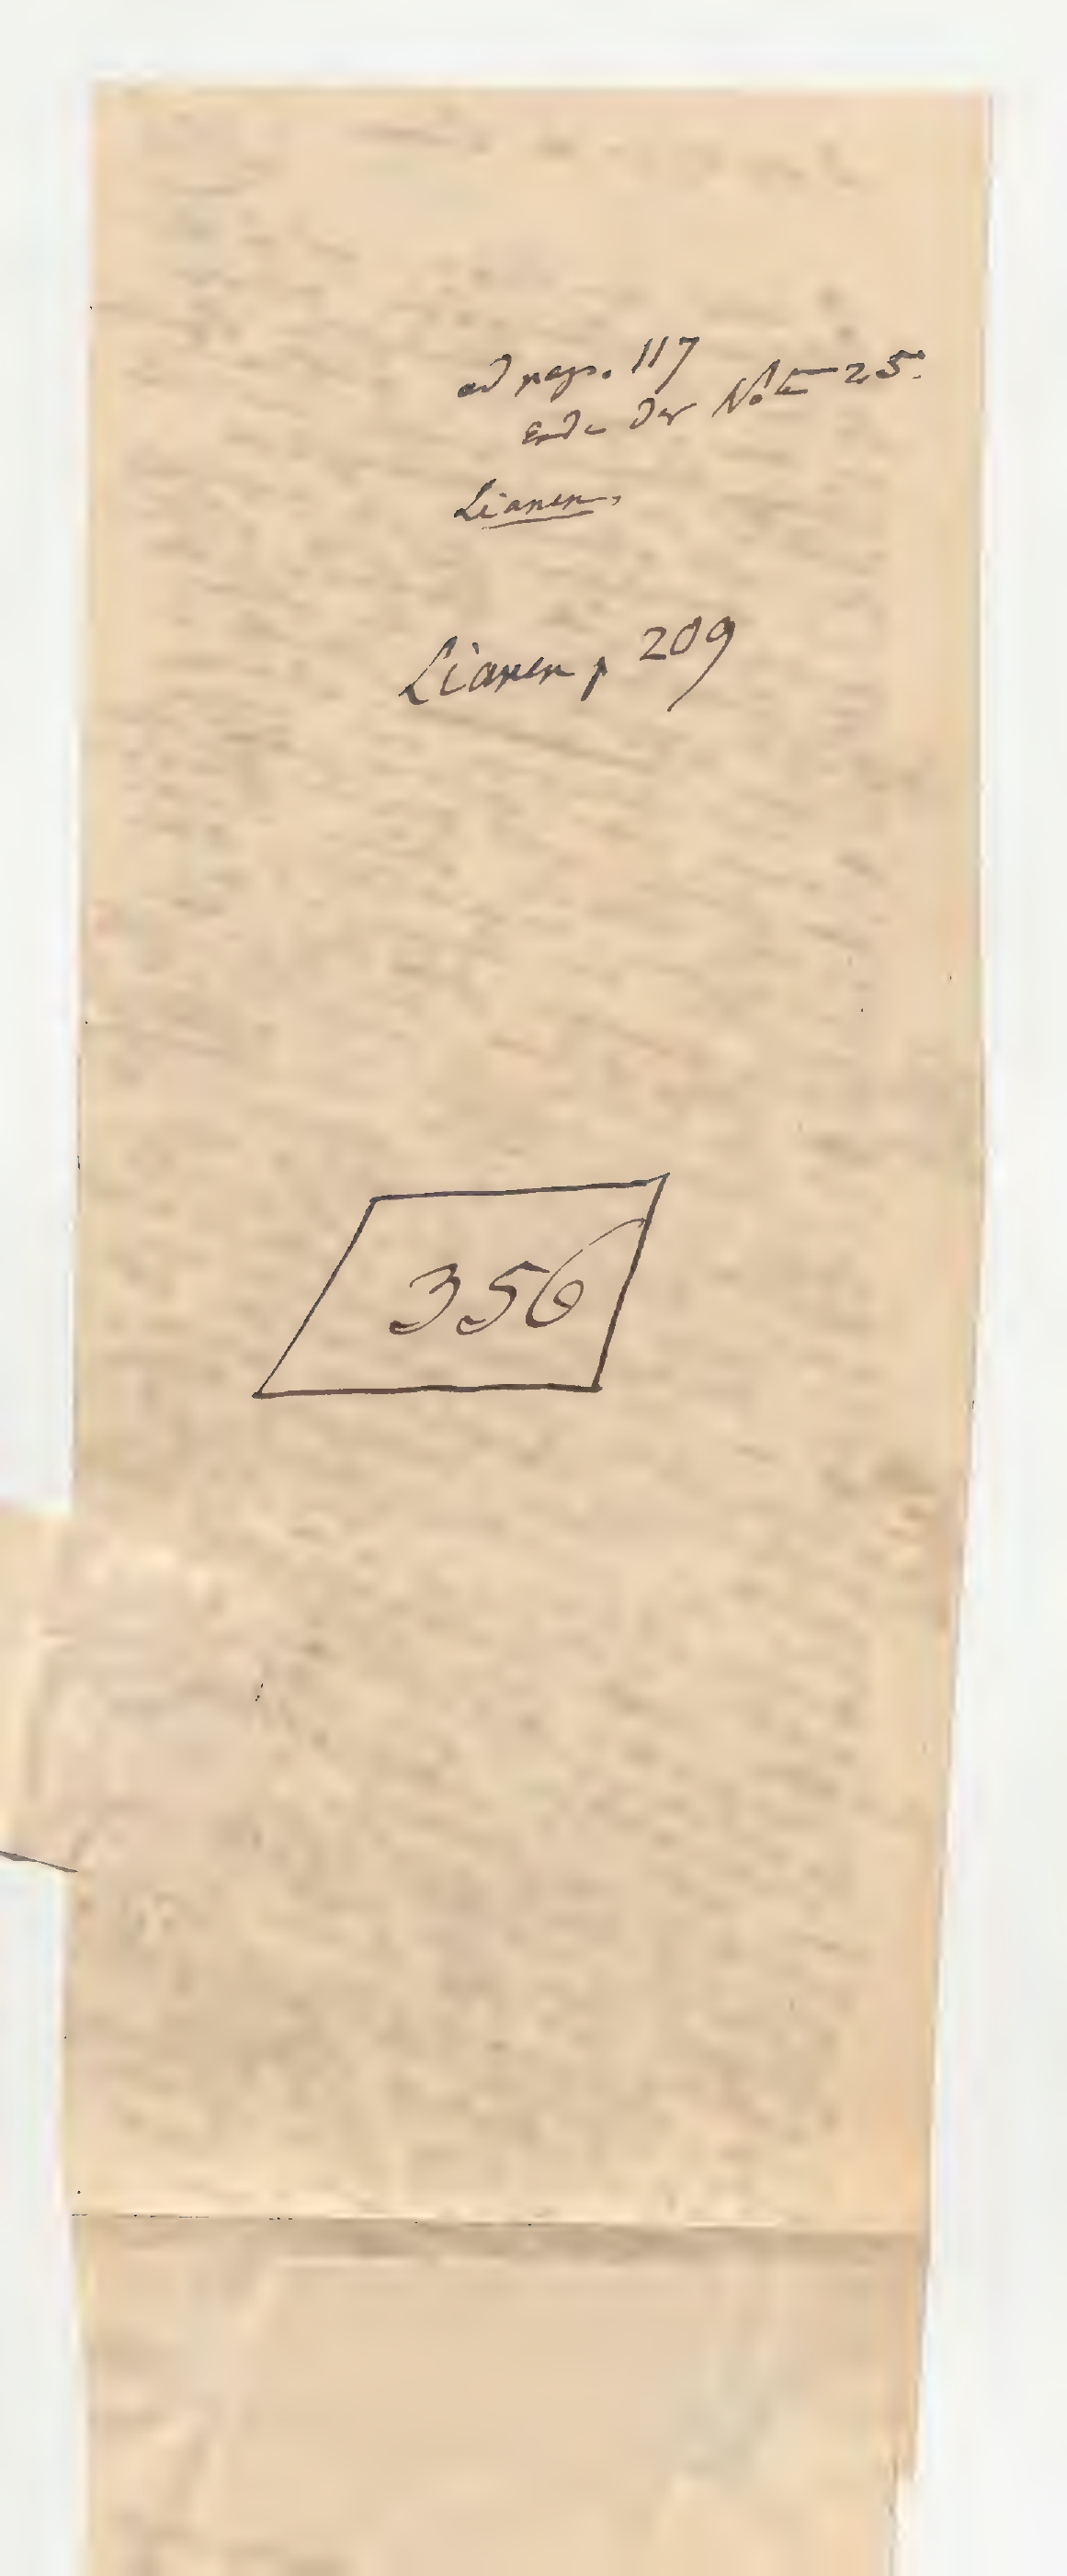 ad pag. 117
Ende der Note 25.
Lianen,
Lianen p 209
356